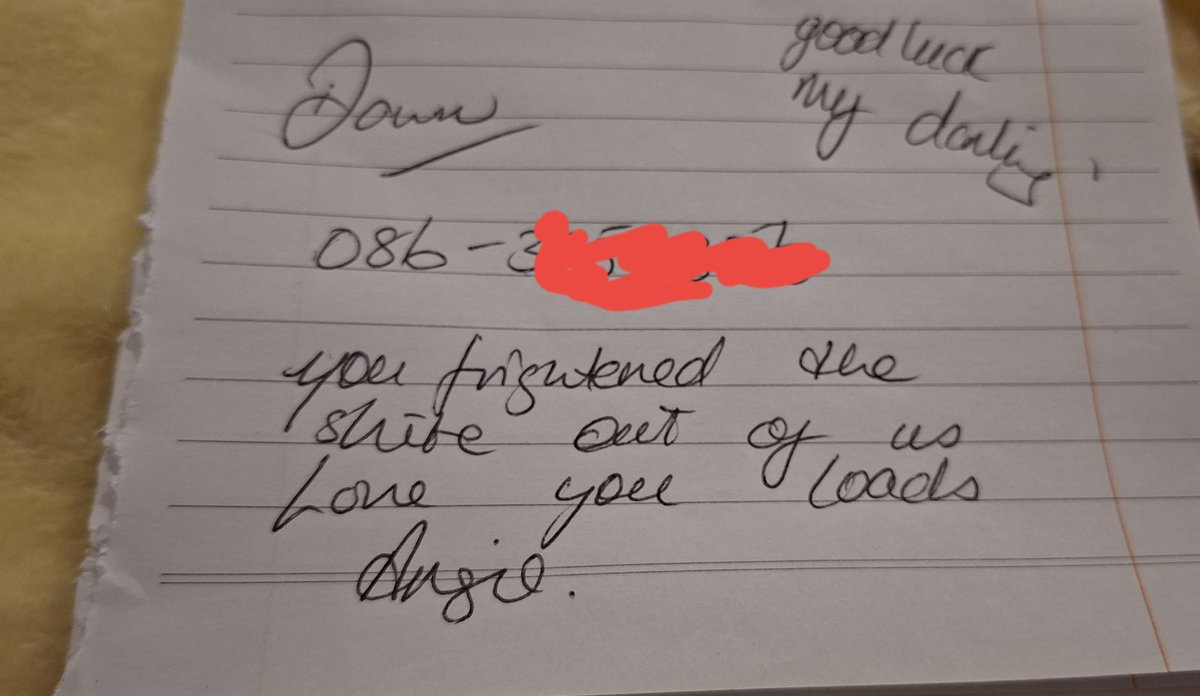 good luck
my darling
Dawn
086-3
you frightened the
shite out of us
Love you loads
Angie.